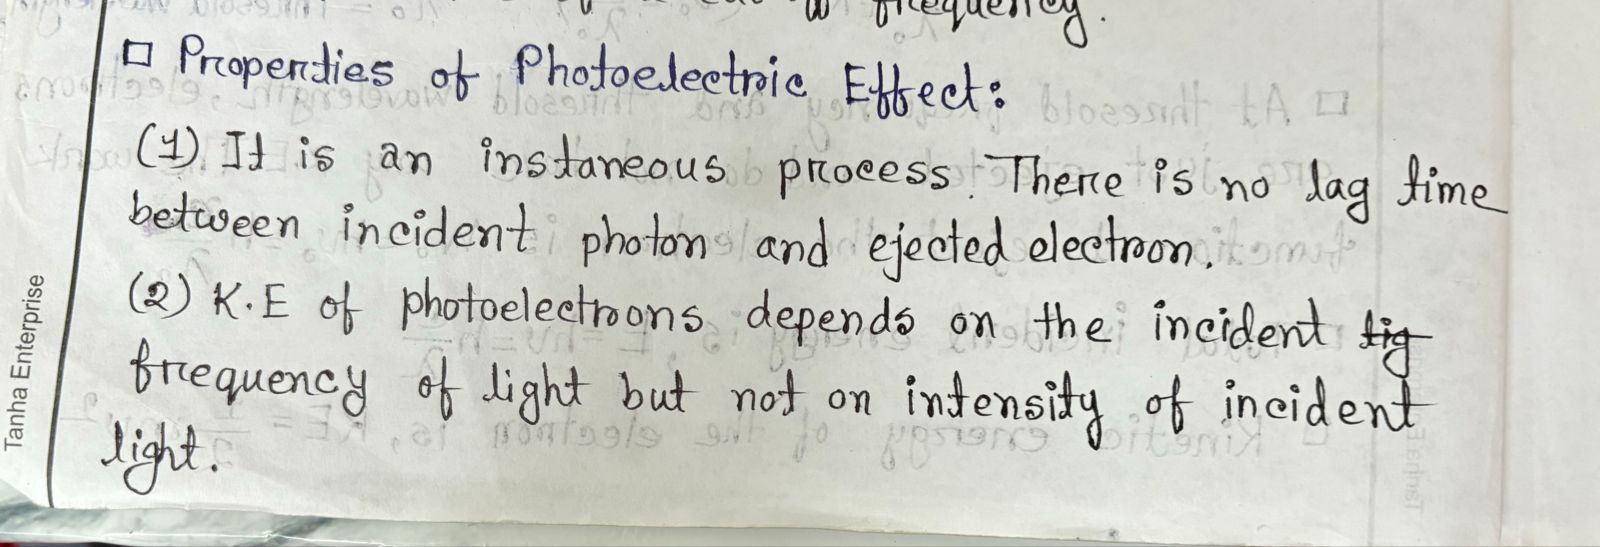 frequency.
□ Properties of Photoelectric Effect:
(1) It is an instaneous process. There is no lag time
between incident photon and ejected electron.
(2) K.E of photoelectrons depends on the incident lig
frequency of light but not on intensity of incident
light.
Tanha Enterprise